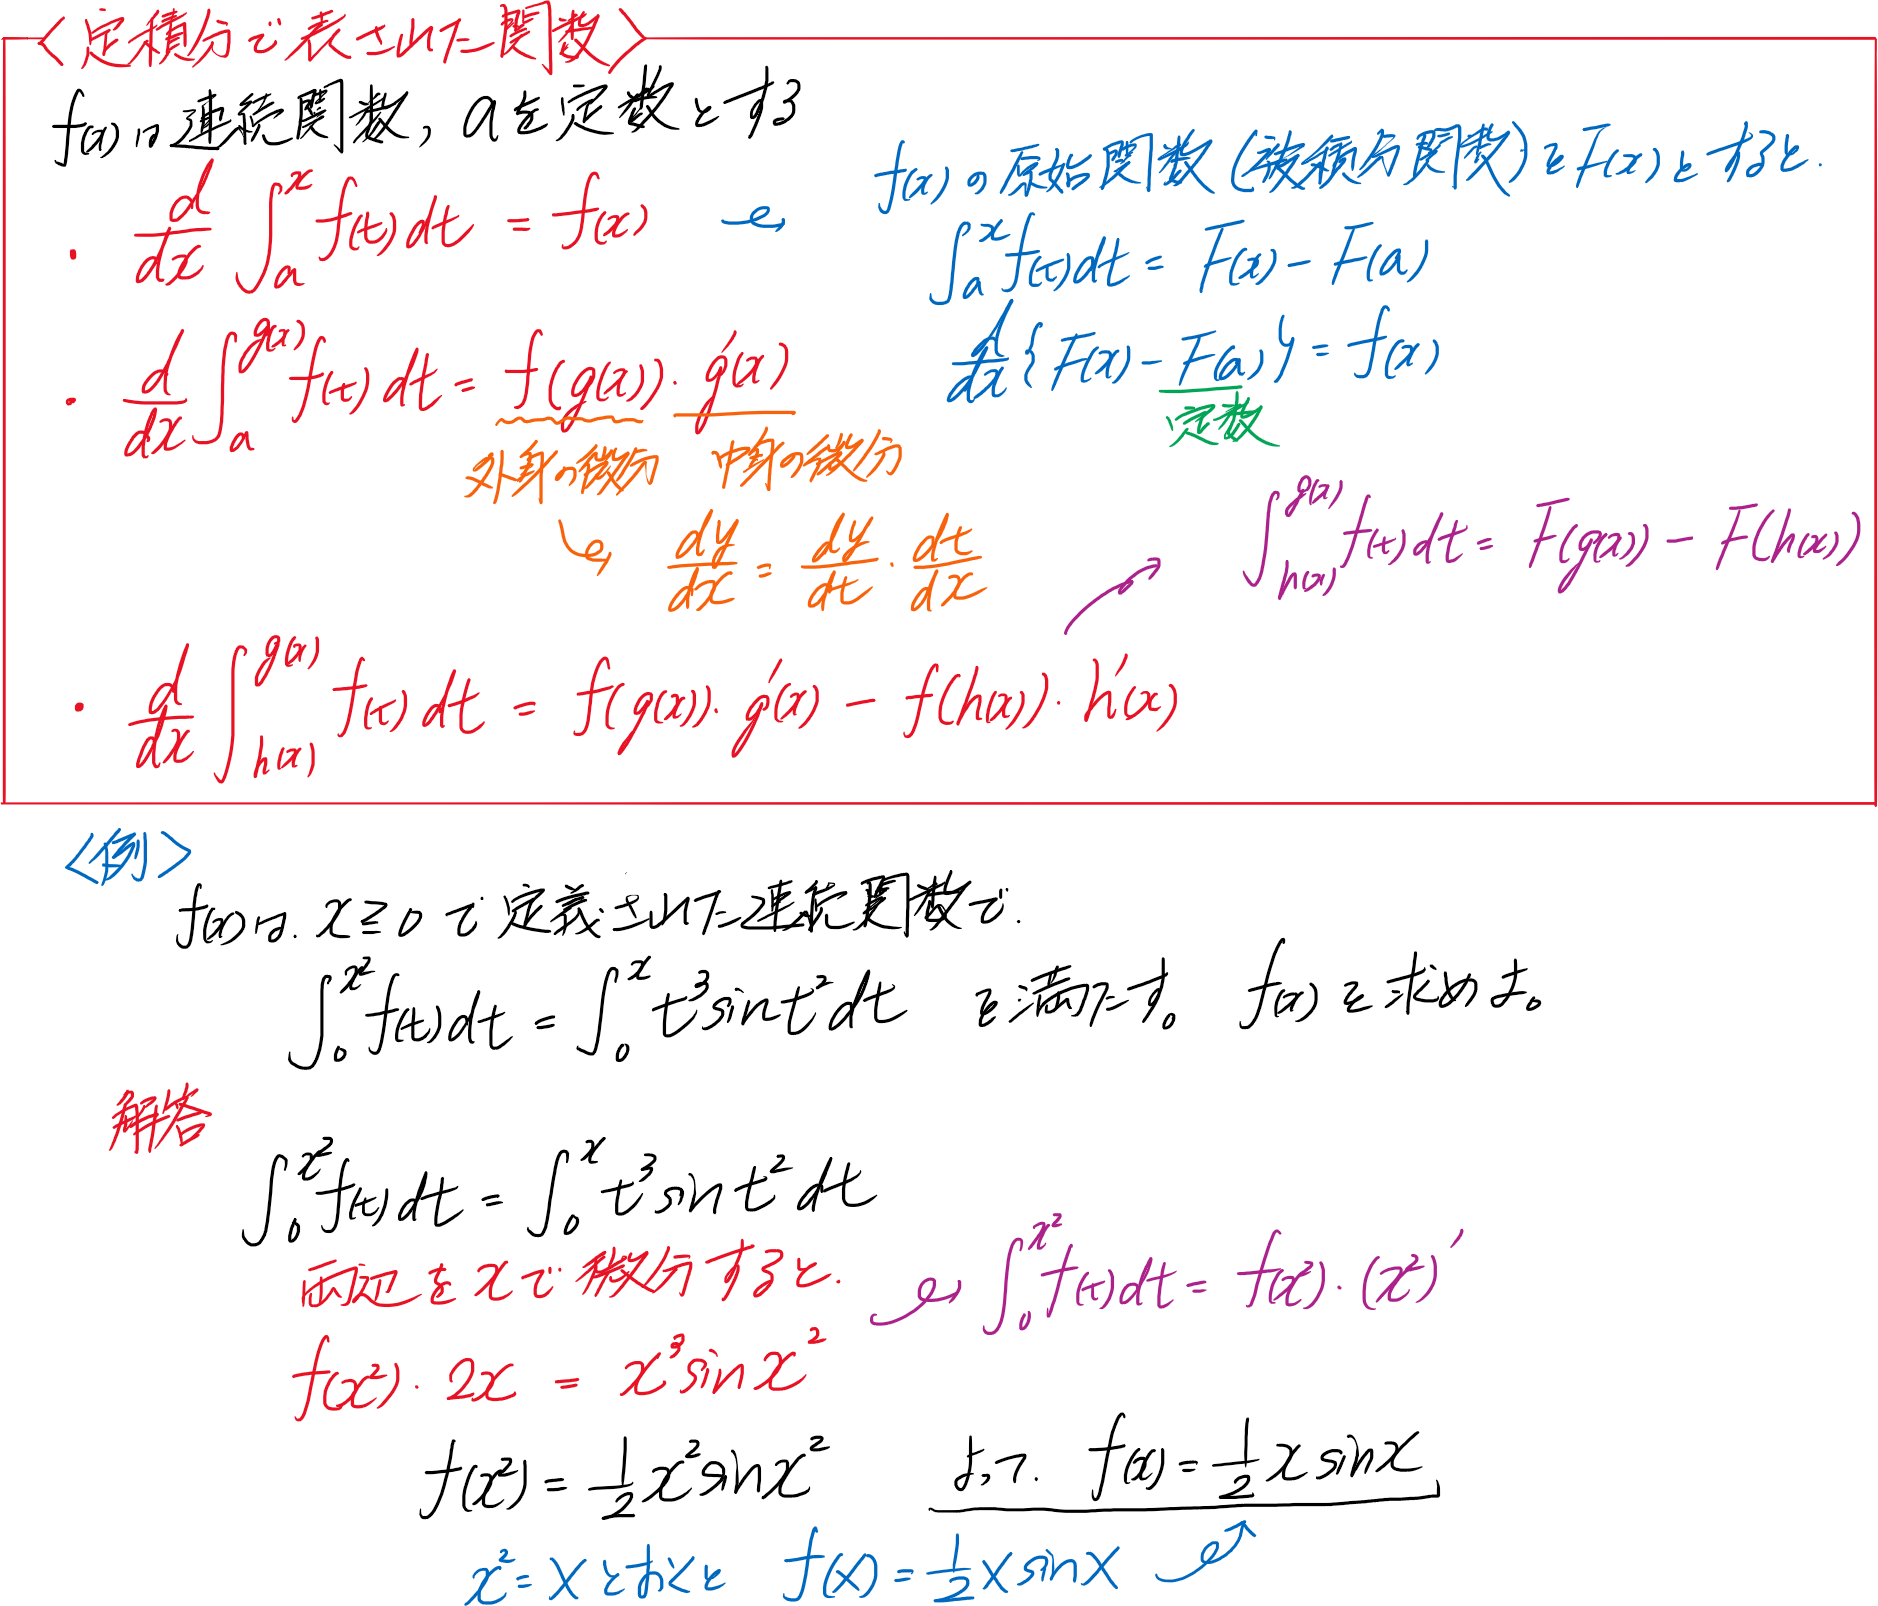 〈定積分で表された関数〉
f(x)は連続関数, aを定数とする
・ d/dx ∫_a^x f(t)dt = f(x)
f(x)の原始関数(被積分関数)をF(x)とすると.
∫_a^x f(t)dt = F(x) - F(a)
d/dx {F(x) - F(a)} = f(x)
定数
・ d/dx ∫_a^{g(x)} f(t)dt = f(g(x))・g'(x)
外身の微分 中身の微分
dy/dx = dy/dt・dt/dx
∫_{h(x)}^{g(x)} f(t)dt = F(g(x)) - F(h(x))
・ d/dx ∫_{h(x)}^{g(x)} f(t)dt = f(g(x))・g'(x) - f(h(x))・h'(x)
〈例〉
f(x)は. x≧0で定義された連続関数で.
∫_0^{x²} f(t)dt = ∫_0^x t³sint²dt を満たす。 f(x)を求めよ。
解答
∫_0^{x²} f(t)dt = ∫_0^x t³sint²dt
両辺をxで微分すると.
∫_0^{x²} f(t)dt = f(x²)・(x²)'
f(x²)・2x = x³sinx²
f(x²) = 1/2 x²sinx² よって. f(x) = 1/2 x sinx
x² = Xとおくと f(X) = 1/2 X sinX